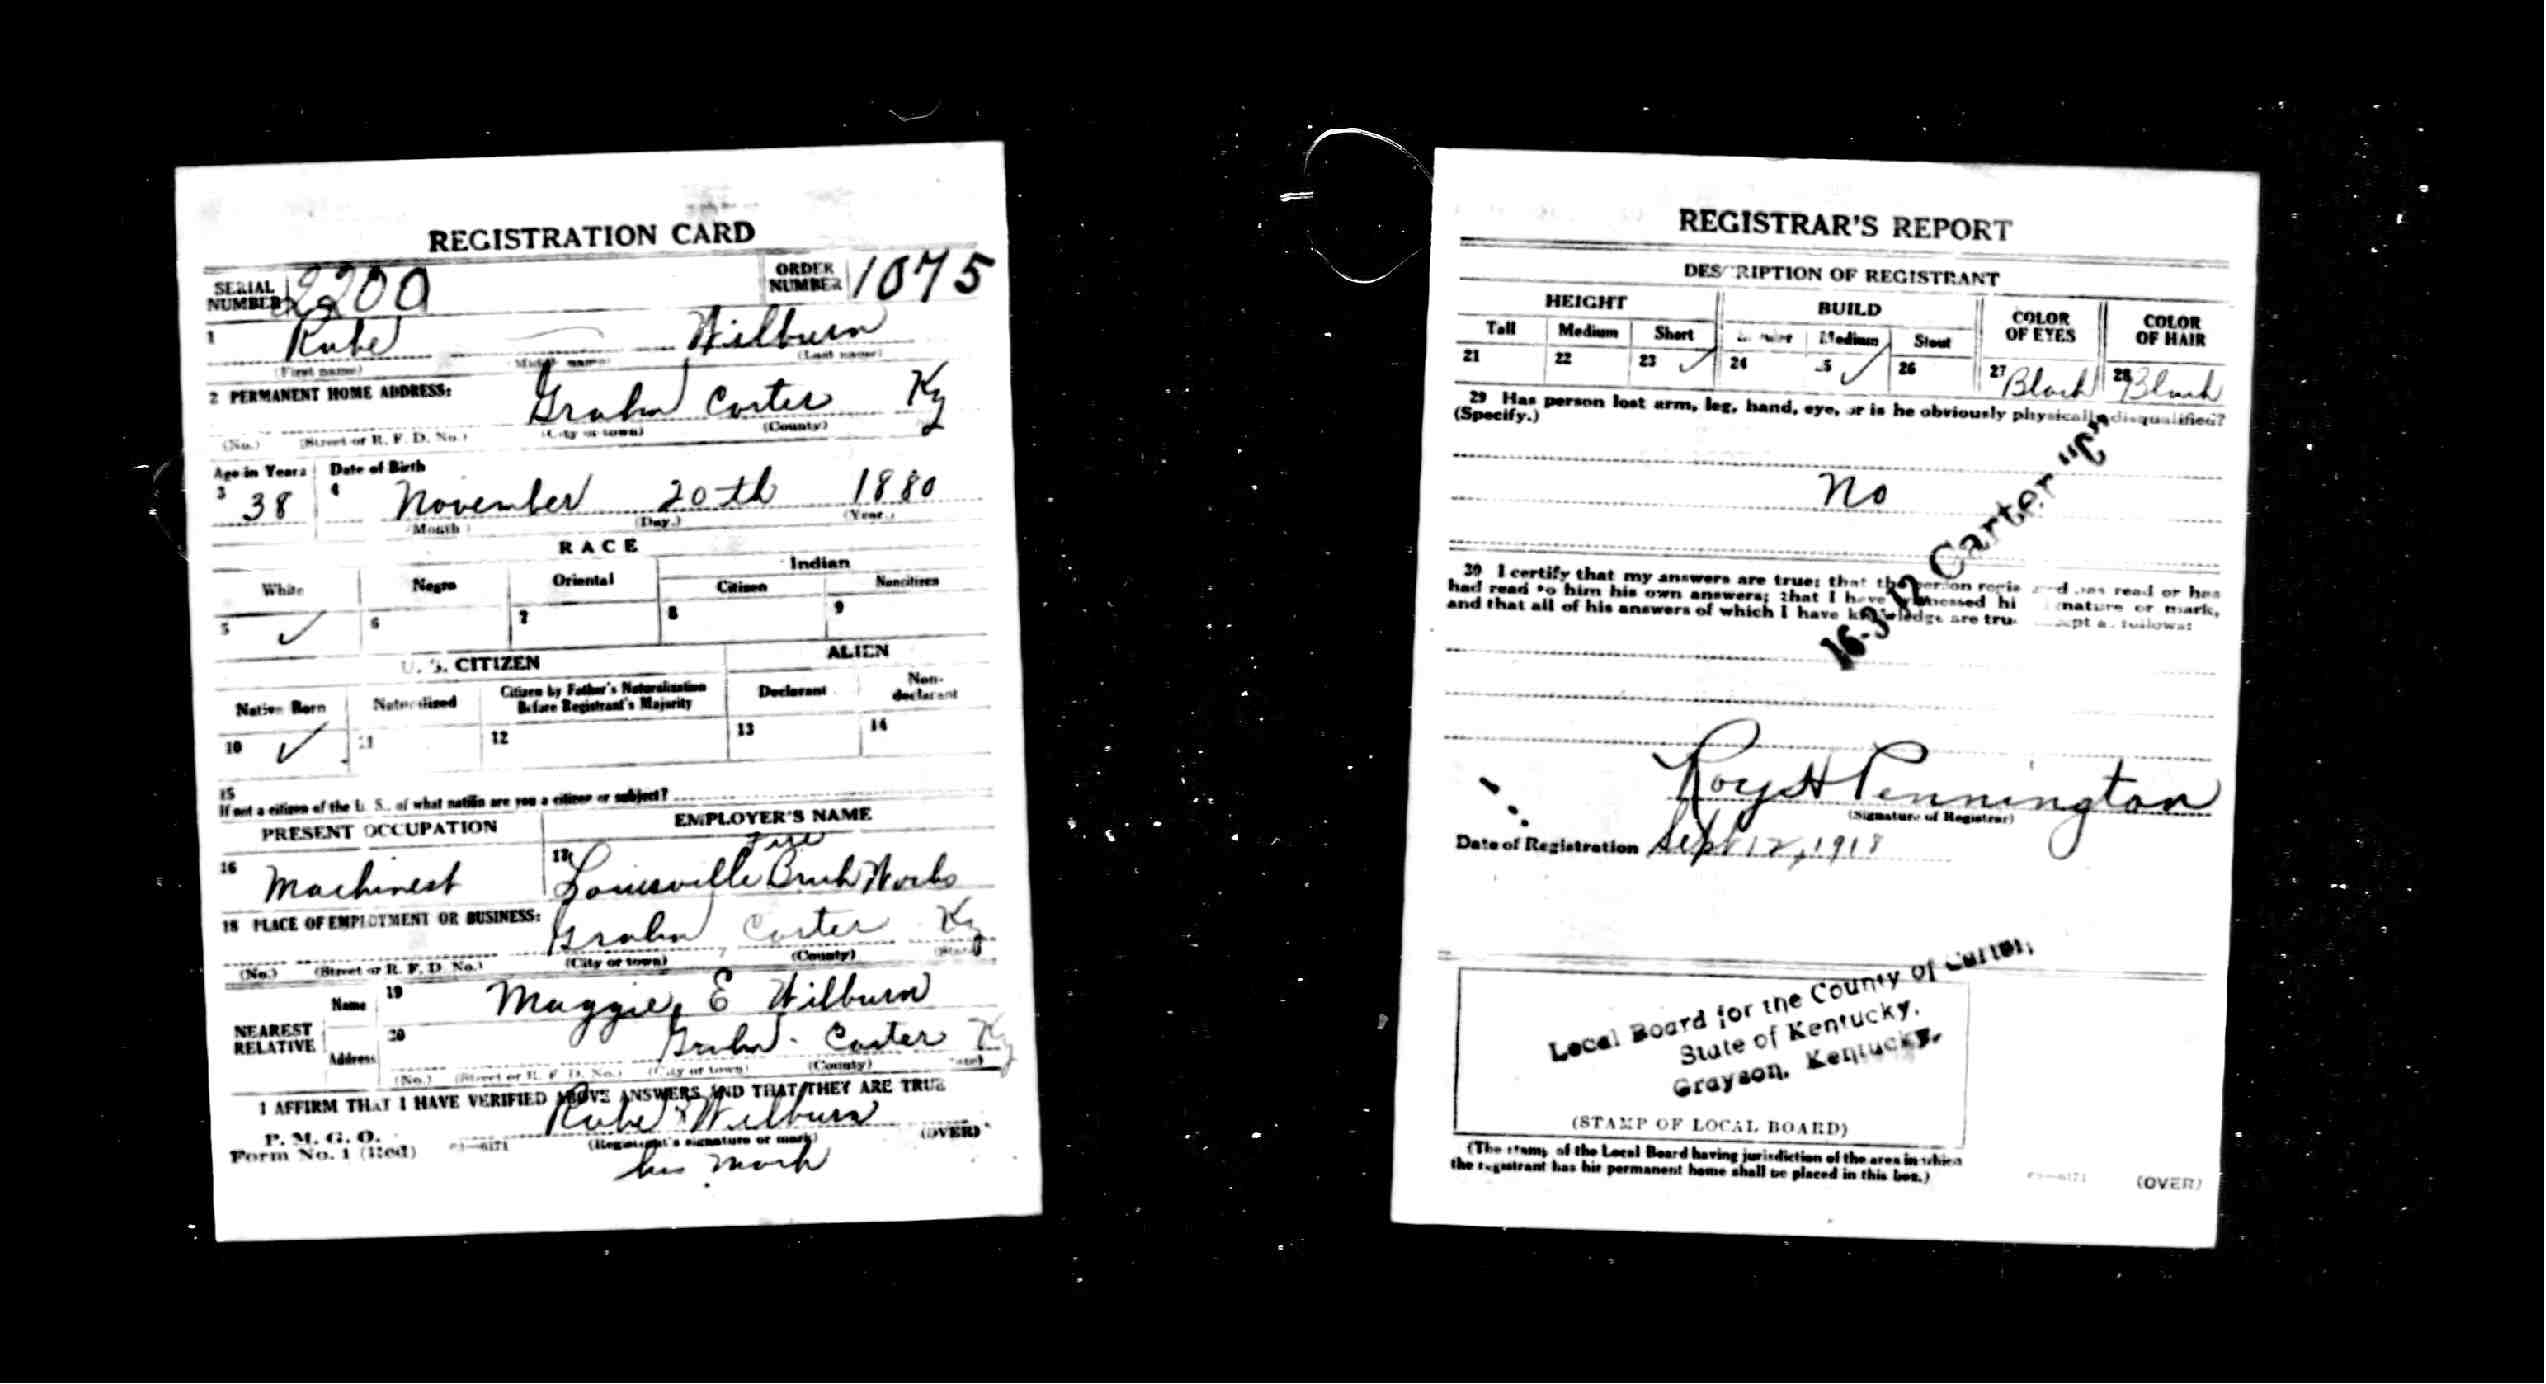 REGISTRATION CARD
SERIAL NUMBER 2200 ORDER NUMBER 1075
1 Rube Wilburn
(First name) (Middle name) (Last name)
2 PERMANENT HOME ADDRESS: Grahn Carter Ky
(No.) (Street or R. F. D. No.) (City or town) (County)
Age in Years Date of Birth
3 38 4 November 20th 1880
(Month) (Day.) (Year.)
RACE
White Negro Oriental Indian
Citizen Noncitizen
5 ✓ 6 7 8 9
U. S. CITIZEN ALIEN
Native Born Naturalized Citizen by Father's Naturalization Before Registrant's Majority Declarant Non-declarant
10 ✓ 11 12 13 14
15
If not a citizen of the U. S., of what nation are you a citizen or subject?
PRESENT OCCUPATION EMPLOYER'S NAME
Fire
16 Machinest 17 Louisville Brick Works
18 PLACE OF EMPLOYMENT OR BUSINESS: Grahn Carter Ky
(No.) (Street or R. F. D. No.) (City or town) (County) (State)
NEAREST RELATIVE Name 19 Maggie E Wilburn
Address 20 Grahn Carter Ky
(No.) (Street or R. F. D. No.) (City or town) (County) (State)
I AFFIRM THAT I HAVE VERIFIED ABOVE ANSWERS AND THAT THEY ARE TRUE
Rube x Wilburn
P. M. G. O.
Form No. 1 (Red) (Registrant's signature or mark) (OVER)
his mark
REGISTRAR'S REPORT
DESCRIPTION OF REGISTRANT
HEIGHT BUILD COLOR OF EYES COLOR OF HAIR
Tall Medium Short Slender Medium Stout
21 22 23 ✓ 24 25 ✓ 26 27 Black 28 Black
29 Has person lost arm, leg, hand, eye, or is he obviously physically disqualified?
(Specify.)
No
16-3-12 Carter "C"
30 I certify that my answers are true; that the person registered has read or has
had read to him his own answers; that I have witnessed his signature or mark,
and that all of his answers of which I have knowledge are true, except as follows:
Roy H Pennington
(Signature of Registrar)
Date of Registration Sept 12, 1918
Local Board for the County of Carter,
State of Kentucky.
Grayson, Kentucky.
(STAMP OF LOCAL BOARD)
(The stamp of the Local Board having jurisdiction of the area in which
the registrant has his permanent home shall be placed in this box.)
(OVER)